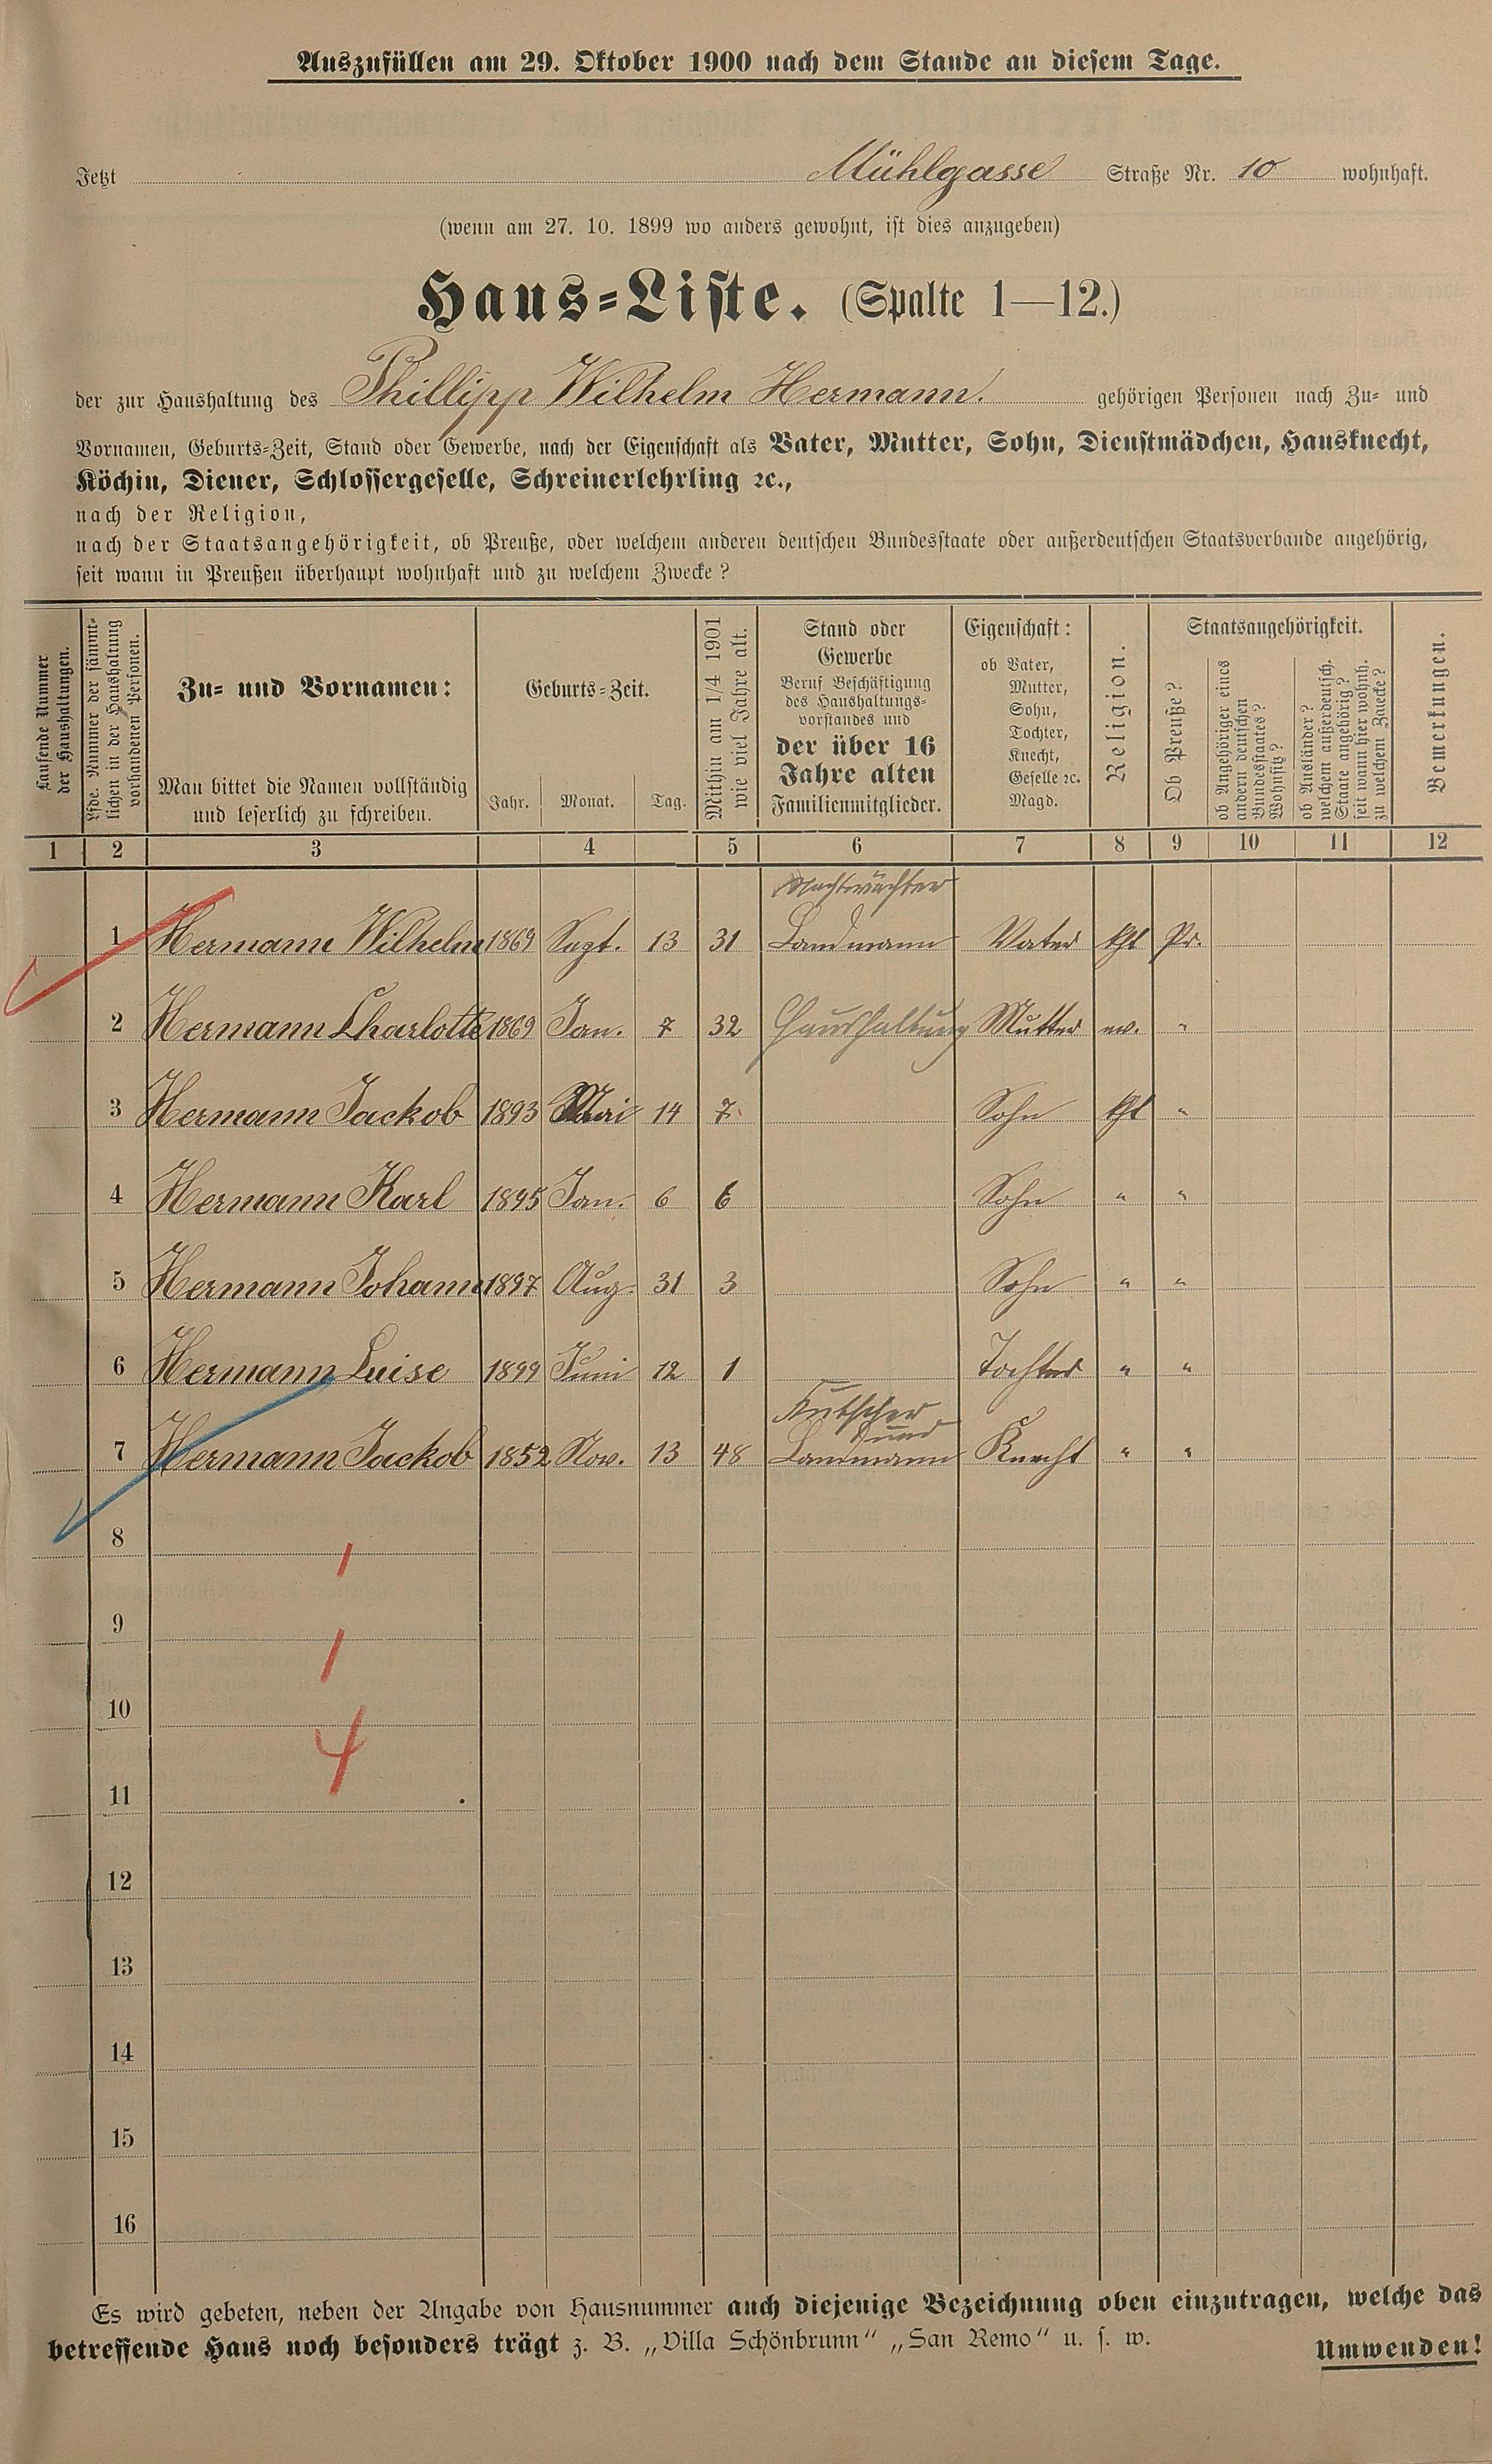 Auszufüllen am 29. Oktober 1900 nach dem Stande an diesem Tage.
Jetzt Mühlgasse Straße Nr. 10 wohnhaft.
(wenn am 27. 10. 1899 wo anders gewohnt, ist dies anzugeben)
Haus-Liste. (Spalte 1—12.)
der zur Haushaltung des Phillipp Wilhelm Hermann. gehörigen Personen nach Zu- und
Vornamen, Geburts-Zeit, Stand oder Gewerbe, nach der Eigenschaft als Vater, Mutter, Sohn, Dienstmädchen, Hausknecht,
Köchin, Diener, Schlossergeselle, Schreinerlehrling ꝛc.,
nach der Religion,
nach der Staatsangehörigkeit, ob Preuße, oder welchem anderen deutschen Bundesstaate oder außerdeutschen Staatsverbande angehörig,
seit wann in Preußen überhaupt wohnhaft und zu welchem Zwecke?
Laufende Nummer
der Haushaltungen.
Lfde. Nummer der sämmt-
lichen in der Haushaltung
vorhandenen Personen.
Zu- und Vornamen:
Man bittet die Namen vollständig
und leserlich zu schreiben.
Geburts-Zeit.
Jahr. Monat. Tag.
Mithin am 1/4 1901
wie viel Jahre alt.
Stand oder
Gewerbe
Beruf Beschäftigung
des Haushaltungs-
vorstandes und
der über 16
Jahre alten
Familienmitglieder.
Eigenschaft:
ob Vater,
Mutter,
Sohn,
Tochter,
Knecht,
Geselle ꝛc.
Magd.
Religion.
Staatsangehörigkeit.
Ob Preuße?
ob Angehöriger eines
andern deutschen
Bundesstaates?
Wohnsitz?
ob Ausländer?
welchem außerdeutsch.
Staate angehörig?
seit wann hier wohnh.
zu welchem Zwecke?
Bemerkungen.
1 2 3 4 5 6 7 8 9 10 11 12
Nachtwächter
1 Hermann Wilhelm 1869 Sept. 13 31 Landmann Vater kht Pr.
2 Hermann Charlotte 1869 Jan. 7 32 Haushaltung Mutter ev. "
3 Hermann Jackob 1893 Mai 14 7 Sohn kht "
4 Hermann Karl 1895 Jan. 6 6 Sohn " "
5 Hermann Johann 1897 Aug. 31 3 Sohn " "
6 Hermann Luise 1899 Juni 12 1 Tochter " "
Kutscher
und
7 Hermann Jackob 1852 Nov. 13 48 Landmann Knecht " "
8
1
9
1
10
4
11
12
13
14
15
16
Es wird gebeten, neben der Angabe von Hausnummer auch diejenige Bezeichnung oben einzutragen, welche das
betreffende Haus noch besonders trägt z. B. „Villa Schönbrunn" „San Remo" u. s. w.
Umwenden!